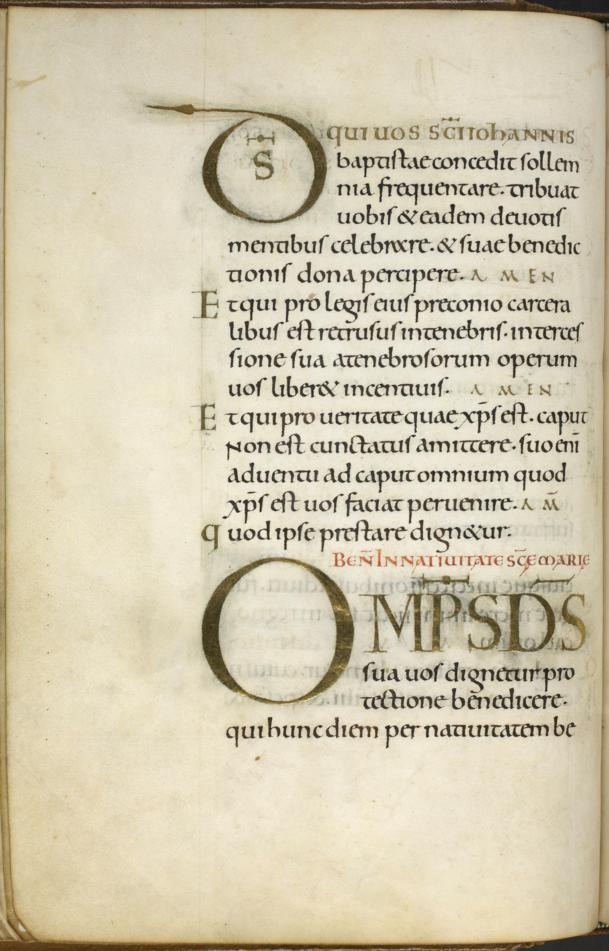 D̄S qui uos sc̄i iohannis
baptistae concedit sollem
nia frequentare. tribuat
uobis & eadem deuotis
mentibus celebrare. & suae benedic
tionis dona percipere. AMEN
Et qui pro legis eius preconio carcera
libus est retrusus in tenebris. interces
sione sua a tenebrosorum operum
uos liber& incentiuis. AMEN
Et qui pro ueritate quae xp̄s est. caput
non est cunctatus amittere. suo eni̅
aduentu ad caput omnium quod
xp̄s est uos faciat peruenire. AM̄
quod ipse prestare dign&ur.
BEN̄ IN NATIUITATE SC̄E MARIE
OMP̄S D̄S
sua uos dignetur pro
tectione benedicere.
qui hunc diem per natiuitatem be